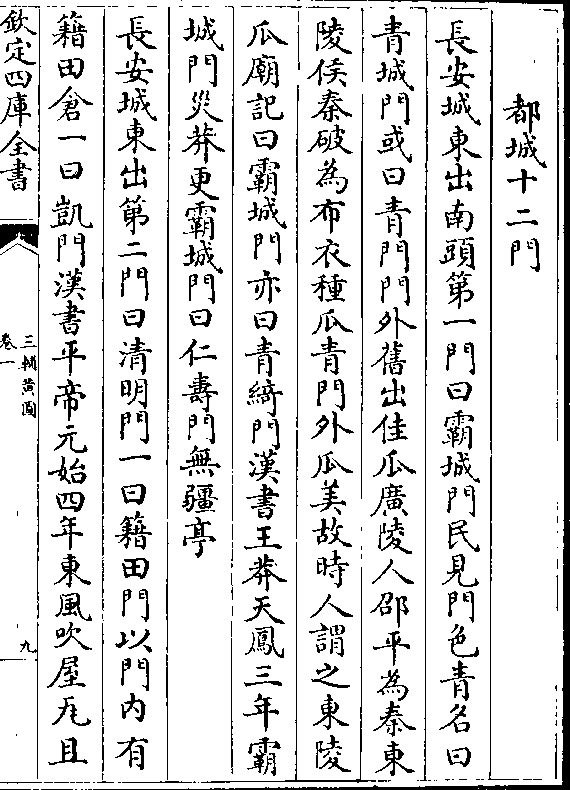 都城十二門
長安城東出南頭第一門曰霸城門民見門色青名曰
青城門或曰青門門外舊出佳瓜廣陵人邵平為秦東
陵侯秦破為布衣種瓜青門外瓜美故時人謂之東陵
瓜廟記曰霸城門亦曰青綺門漢書王莽天鳳三年霸
城門災莽更霸城門曰仁壽門無疆亭
長安城東出第二門曰清明門一曰籍田門以門內有
籍田倉一曰凱門漢書平帝元始四年東風吹屋瓦且
欽定四庫全書
三輔黃圖
卷一
九